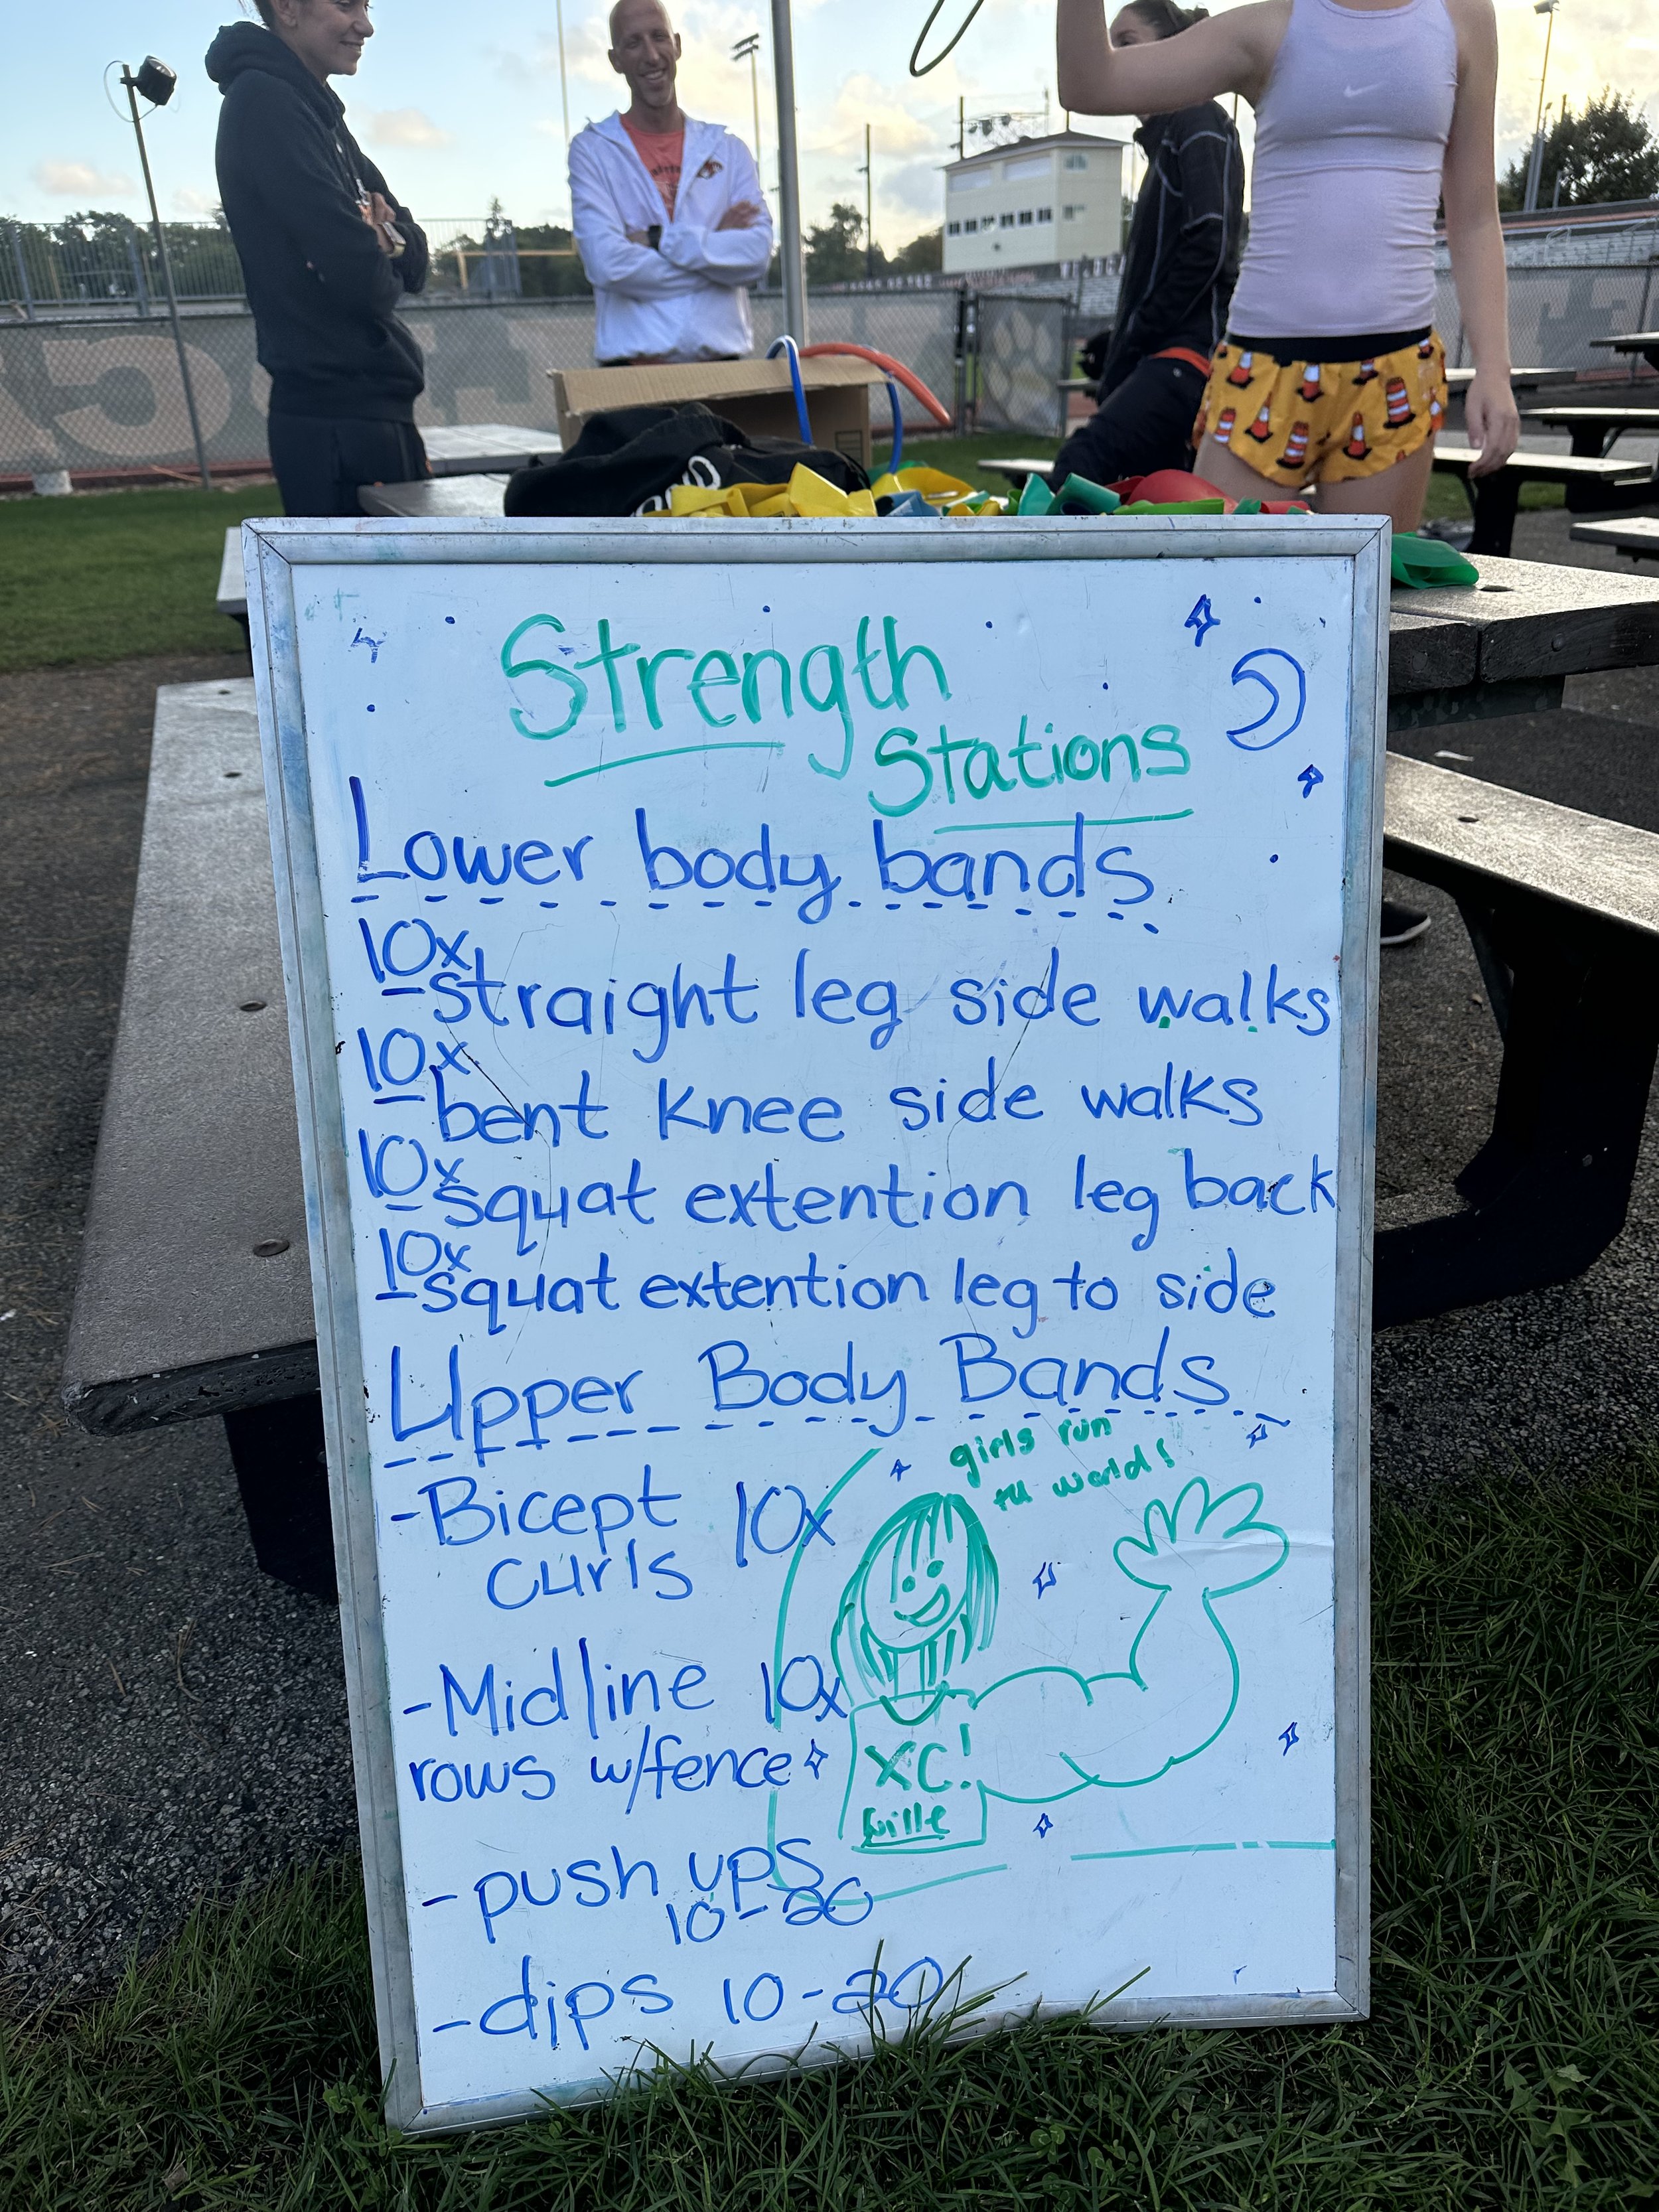 Strength
Stations
Lower body bands
10x
-straight leg side walks
10x
-bent knee side walks
10x
-squat extention leg back
10x
-squat extention leg to side
Upper Body Bands
girls run
the world!
-Bicept 10x
curls
-Midline 10x
rows w/fence
XC!
ville
-push ups
10-20
-dips 10-20